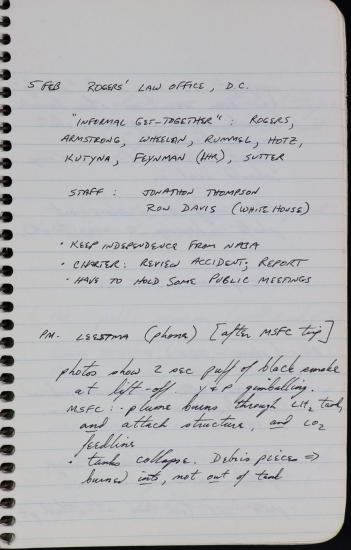 5 FEB ROGERS' LAW OFFICE, D.C.
"INFORMAL GET-TOGETHER": ROGERS,
ARMSTRONG, WHEELAN, RUMMEL, HOTZ,
KUTYNA, FEYNMAN (1HR), SUTTER
STAFF: JONATHON THOMPSON
RON DAVIS (WHITE HOUSE)
• KEEP INDEPENDENCE FROM NASA
• CHARTER: REVIEW ACCIDENT, REPORT
• HAVE TO HOLD SOME PUBLIC MEETINGS
PM. LEESTMA (phone) [after MSFC trip]
photos show 2 sec puff of black smoke
at lift-off. Y & P gimballing.
MSFC: • plume burns through LH2 tank,
and attach structure, and LO2
feedline
• tanks collapse. Debris pieces ⇒
burned into, not out of tank